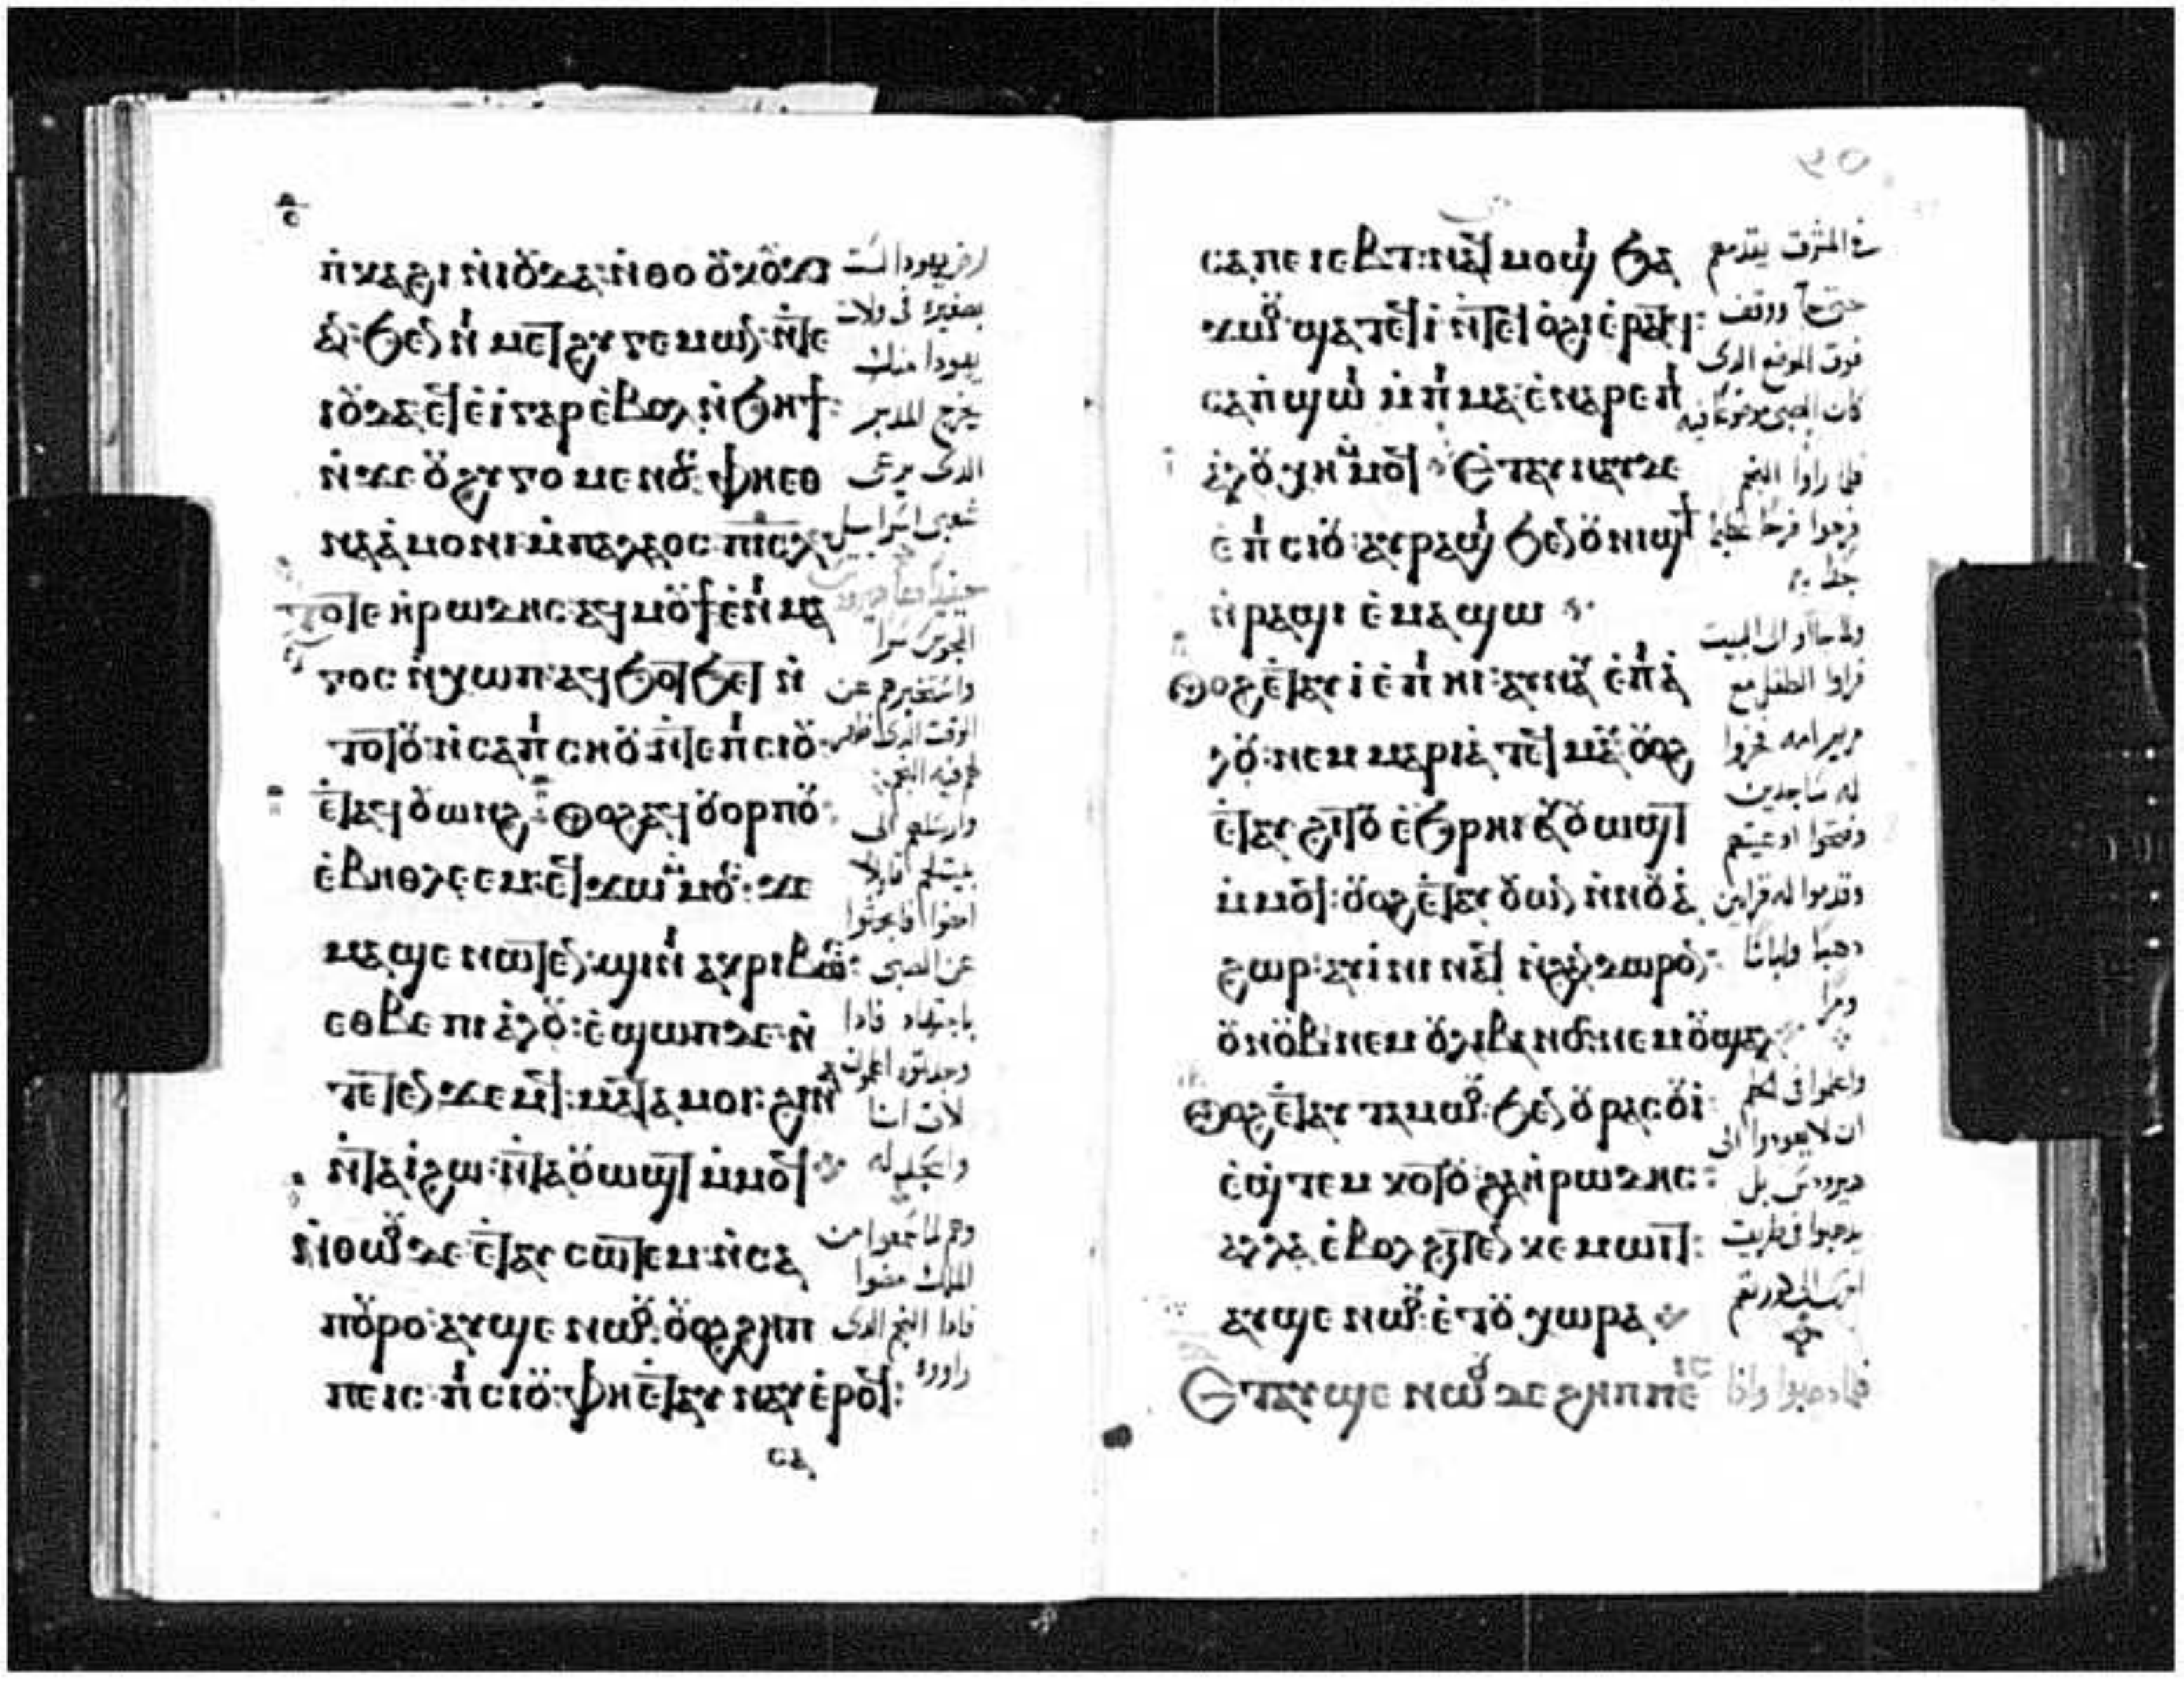 ⲡ̀ⲕⲁϩⲓ ⲛ̀ⲓⲟ̈ⲇⲁ: ⲛ̀ⲑⲟ ⲟ̈ⲕⲟ̈ϫⲓ
ⲁⲛ: ϧⲉⲛ ⲛⲓⲙⲉⲧϩⲩⲅⲉⲙⲱⲛ: ⲛ̀ⲧⲉ
ⲓⲟ̈ⲇⲁ ⲉϥⲉ̀ⲓ̀ ⲅⲁⲣ ⲉ̀ⲃⲟⲗ ⲛ̀ϧⲏϯ:
ⲛ̀ϫⲉ ⲟ̈ϩⲩⲅⲟⲙⲉⲛⲟⲥ: ⲫⲏⲉⲑ
ⲛⲁⲁ̀ⲙⲟⲛⲓ ⲙ̀ⲡⲁⲗⲁⲟⲥ ⲡⲓⲥⲗ
ⲧⲟⲧⲉ ⲏ̀ⲣⲱⲇⲏⲥ: ⲁϥⲙⲟ̈ϯ ⲉ̀ⲛⲓⲙⲁ
ⲅⲟⲥ ⲛ̀ⲭⲱⲡ: ⲁϥϧⲟⲧϧⲉⲧ ⲛ̀
ⲧⲟⲧⲟ̈: ⲛ̀ⲥⲁ ⲡ̀ⲥⲏⲟ̈ ⲛ̀ⲧⲉ ⲡ̀ⲥⲓⲟ̈
ⲉⲧⲁϥⲟ̈ⲱⲛϩ: ⲟⲩⲟϩ ⲁϥⲟ̈ⲟⲣⲡⲟ̈:
ⲉ̀ⲃⲏⲑⲗⲉⲉⲙ: ⲉϥϫⲱ ⲙ̀ⲙⲟⲥ: ϫⲉ
ⲙⲁϣⲉ ⲛⲱⲧⲉⲛ: ϣⲓⲛⲓ ⲁⲕⲣⲓⲃⲱⲥ:
ⲉⲑⲃⲉ ⲡⲓⲁ̀ⲗⲟ̈: ⲉ̀ϣⲱⲡ ⲇⲉ ⲛ̀
ⲧⲉⲧⲉⲛϫⲉⲙϥ: ⲙⲁⲧⲁⲙⲟⲓ: ϩⲓⲛⲁ
ⲛ̀ⲧⲁⲓ̀ ϩⲱ: ⲛ̀ⲧⲁⲟ̈ⲱϣⲧ ⲙ̀ⲙⲟϥ
ⲛ̀ⲑⲱⲟⲩ ⲇⲉ ⲉⲧⲁⲩⲥⲱⲧⲉⲙ ⲛ̀ⲥⲁ
ⲡⲟ̈ⲣⲟ: ⲁⲩϣⲉ ⲛⲱⲟⲩ: ⲟⲩⲟϩ ϩⲏⲡ
ⲡⲉ ⲓⲥ ⲡ̀ⲥⲓⲟ̈: ⲫⲏ ⲉⲧⲁⲩⲛⲁⲩ ⲉ̀ⲣⲟϥ:
ⲥⲁ
ارض يهودا لست
بصغيرة فى ولاة
يهودا منك
يخرج المدبر
الذى يرعى
شعبى اسراييل
حينيذ دعا هيرودس
المجوس سرا
واستخبرهم عن
الوقت الذى
ظهر فيه النجم
وارسلهم الى
بيت لحم قايلا
امضوا فابحثوا
عن الصبى
باجتهاد فاذا
وجدتموه اعلمونى
لاتى انا
واسجد له
وهم لما سمعوا من
الملك مضوا
فاذا النجم الذى
راووه
٢٥
ⲥⲁ ⲡⲉⲓⲉⲃⲧ: ⲛⲁϥⲙⲟϣⲓ ϧⲁ
ϫⲱⲟⲩ ϣⲁⲧⲉϥⲓ̀ ⲛ̀ⲧⲉϥⲟ̀ϩⲓ ⲉ̀ⲣⲁⲧϥ:
ⲥⲁⲡ̀ϣⲱⲓ ⲙ̀ⲡⲓⲙⲁ: ⲉ̀ⲛⲁⲣⲉ ⲡⲓ
ⲁ̀ⲗⲟ̈ ⲭⲏ ⲙ̀ⲙⲟϥ Ⲉⲧⲁⲩⲛⲁⲩ ⲇⲉ
ⲉ̀ⲡ̀ⲥⲓⲟ̈: ⲁⲩⲣⲁϣⲓ ϧⲉⲛ ⲟ̈ⲛⲓϣϯ
ⲛ̀ⲣⲁϣⲓ ⲉ̀ⲙⲁϣⲱ
Ⲟⲩⲟϩ ⲉⲧⲁⲩⲓ̀ ⲉ̀ⲡⲓⲏⲓ: ⲁⲩⲛⲁⲩ ⲉ̀ⲡⲓⲁ̀
ⲗⲟ̈: ⲛⲉⲙ ⲙⲁⲣⲓⲁ̀ ⲧⲉϥⲙⲁⲩ: ⲟⲩⲟϩ
ⲉⲧⲁⲩϩⲓⲧⲟ̈ ⲉ̀ϧⲣⲏⲓ ⲁⲩⲟ̈ⲱϣⲧ
ⲙ̀ⲙⲟϥ: ⲟⲩⲟϩ ⲉⲧⲁⲩⲟ̈ⲱⲛ ⲛ̀ⲛⲟ̈ⲁ̀
ϩⲱⲣ: ⲁⲩⲓ̀ⲛⲓ ⲛⲁϥ ⲛ̀ϩⲁⲛⲇⲱⲣⲟⲛ:
ⲟ̈ⲛⲟ̈ⲃ: ⲛⲉⲙ ⲟ̈ⲗⲓⲃⲁⲛⲟⲥ: ⲛⲉⲙ ⲟ̈ϣⲁⲗ
Ⲟⲩⲟϩ ⲉⲧⲁⲩⲧⲁⲙⲱⲟⲩ: ϧⲉⲛ ⲟ̈ⲣⲁⲥⲟⲩⲓ:
ⲉ̀ϣⲧⲉⲙⲕⲟⲧⲟ̈ ϩⲁ ⲏ̀ⲣⲱⲇⲏⲥ:
ⲁⲗⲗⲁ ⲉ̀ⲃⲟⲗ ϩⲓⲧⲉⲛ ⲕⲉⲙⲱⲓⲧ:
ⲁⲩϣⲉ ⲛⲱⲟⲩ: ⲉ̀ⲧⲟ̈ⲭⲱⲣⲁ
Ⲉⲧⲁⲩϣⲉ ⲛⲱⲟⲩ ⲇⲉ ϩⲏⲡⲡⲉ
فى المشرق يتقدمهم
حتى جا ووقف
فوق الموضع الذى
كان الصبى موضوعا فيه
فلما راوا النجم
فرحوا فرحا عظيما
جدا
ولما جاوا الى البيت
فراوا الطفل مع
مريم امه فخروا
له ساجدين
وفتحوا اوعيتهم
وقدموا له قرابين
ذهبا ولبانا
ومرا
واعلموا فى الحلم
ان لا يعودوا الى
هيرودس بل
يذهبوا فى طريق
اخرى الى كورتهم
فلما ذهبوا واذا